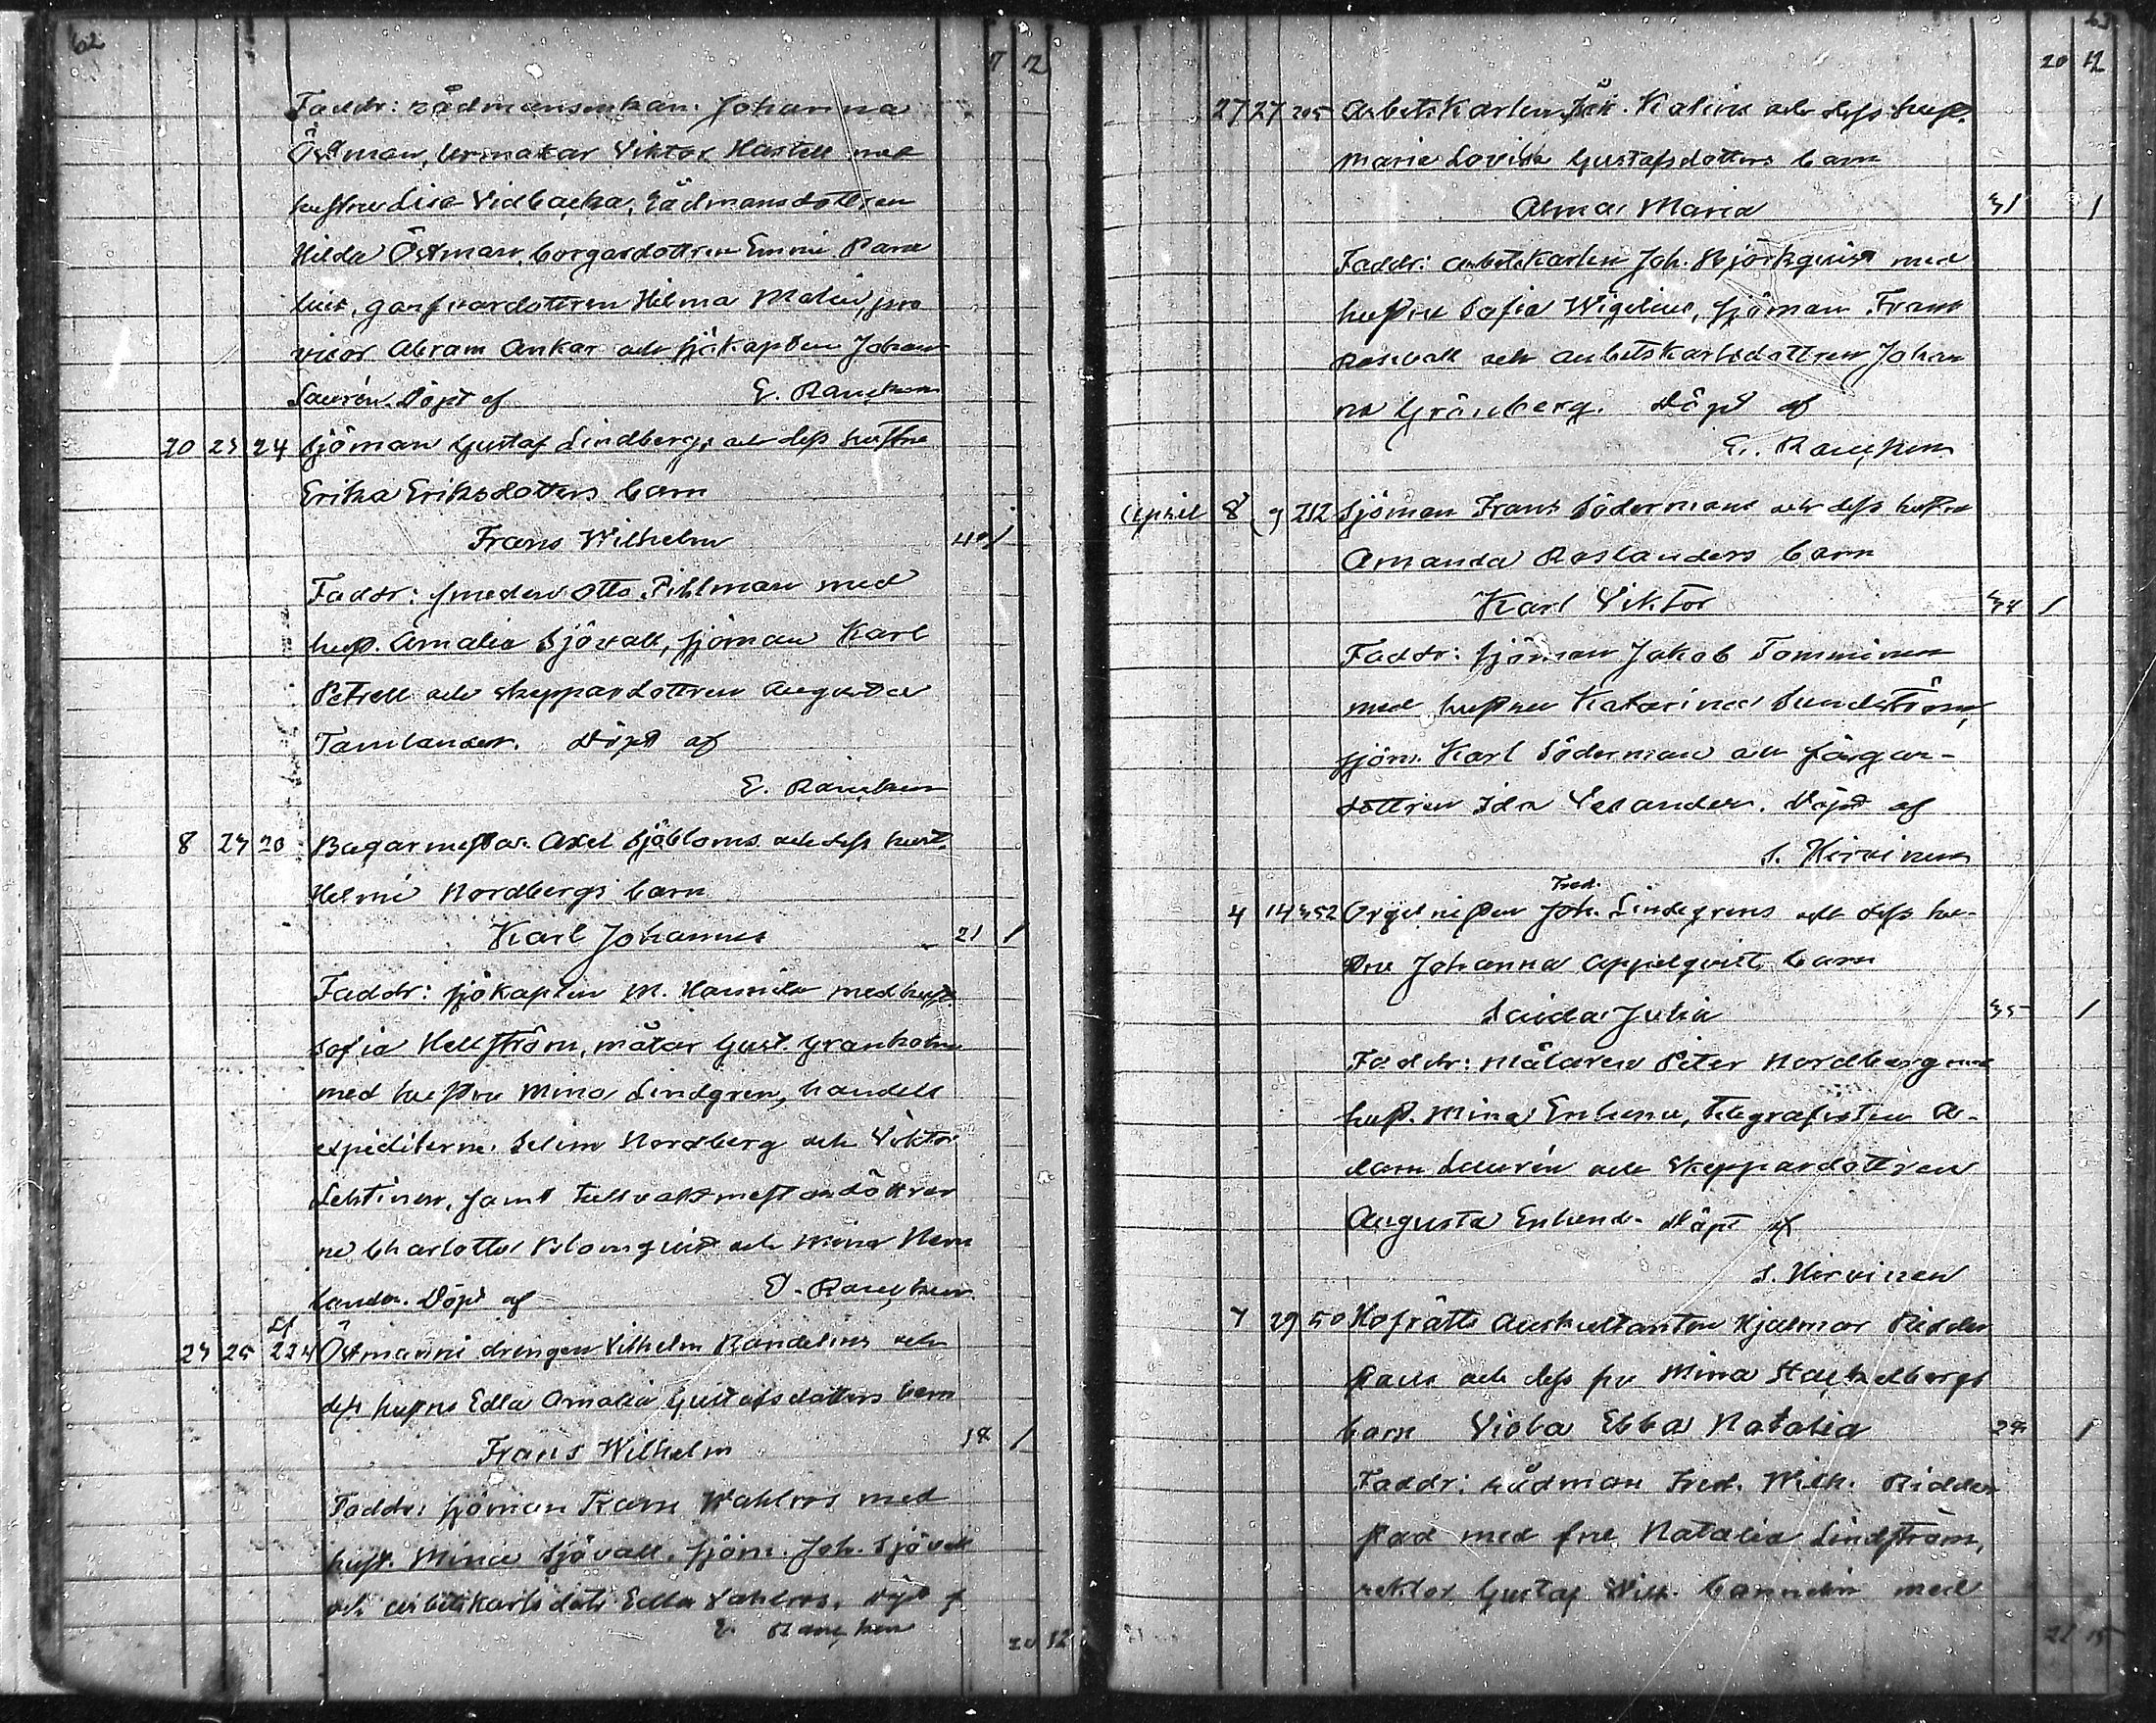 62
7 2
Faddr: rådmansenkan Johanna
Östman, urmakar Viktor Hastell med
hustru Lisa Vidbacka, rådmansdottren
Hilda Östman, borgardottren Emmi
garfvardottren Hilma Malin, pro
visor Abram Ankar och sjökapten Johan
Laurén. Döpt af E. Rancken
20 23 24 Sjöman Gustaf Lindbergs och dess hustru
Erika Eriksdotters barn
Frans Wilhelm 40 1
Faddr: smeden Otto Pihlman med
hust. Amalia Sjövall, sjöman Karl
Petrell och skeppardottren Augusta
Tamlander. Döpt af
E. Rancken
8 24 20 Bagarmästar Axel Sjöbloms och dess hust.
Helmi Nordbergs barn
Karl Johannes 21 1
Faddr: sjökapten M. Hannila med hust
Sofia Hellström, målar Gust. Granholm
med hustru Mina Lindgren, handels
expediterne Selim Nordberg och Viktor
Lehtinen, samt tullvaktmestardöttrar
ne Charlotta Blomqvist och Mina
lander. Döpt af E. Rancken
24 25 224 Östmanni drengen Vilhelm Randelins och
dess hustru Edla Amalia Gustafsdotters barn
Frans Wilhelm 38 1
Faddr: sjöman Frans Wahlros med
hust. Mina Sjövall, sjöm. Joh. Sjövall
och arbetskarls dotr Edla Vahlros. Döpt af
E. Rancken
20 12
63
20 12
27 27 205 Arbetskarlen Joh. Kalins och dess hust.
Maria Lovisa Gustafsdotters barn
Alma Maria 31 1
Faddr: arbetskarlen Joh. Björkqvist med
hustru Sofia Wigelius, sjöman Frans
Rosvall och arbetskarlsdottren Johan
na Grönberg. Döpt af
E. Rancken
April 8 9 212 Sjöman Frans Södermans och dess hustru
Amanda Roslanders barn
Karl Viktor 34 1
Faddr: sjöman Jakob Tomminen
med hustru Katarina Sundström,
sjöm. Karl Söderman och färgar-
dottren Ida Velander. Döpt af
S. Hirvinen
Fred.
4 14 352 Orgelnisten Joh. Lindegrens och dess hu-
stru Johanna Appelqvist barn
Saida Julia 35 1
Faddr: Målaren Peter Nordberg med
hust. Mina Enlund, Telegrafisten A-
dam Laurén och Skeppardottren
Augusta Enlund. Döpt af
S. Hirvinen
7 29 50 Hofrätts Auskultanten Hjalmar Ridder
stads och dess fru Mina Stackelbergs
barn Viola Ebba Natalia 24 1
Faddr: rådman Fred. Wilh. Ridder
stad med fru Natalia Lindström,
rektor Gustaf Wilh. Cannelin med
21 15